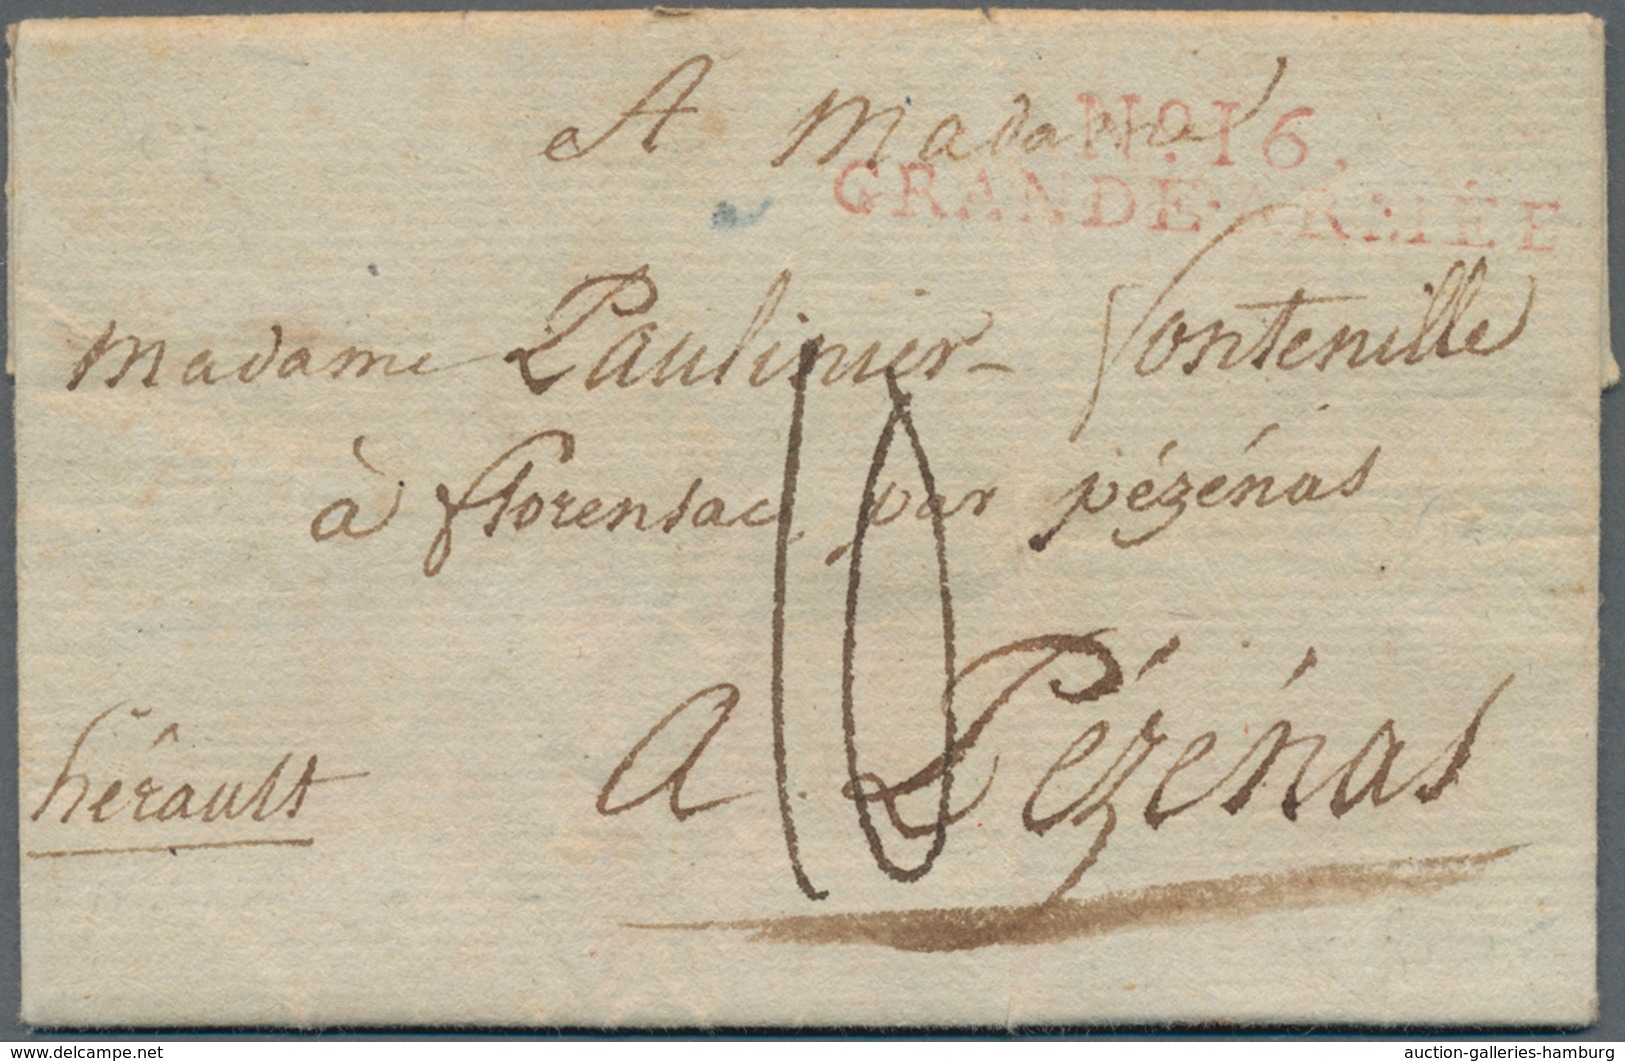 A Madame
No. 16.
GRANDE-ARMÉE
Madame Paulinier-Fontenille
à florensac par pézénas
10
hérault
A Pézénas
delcampe.net
auction-galleries-hamburg